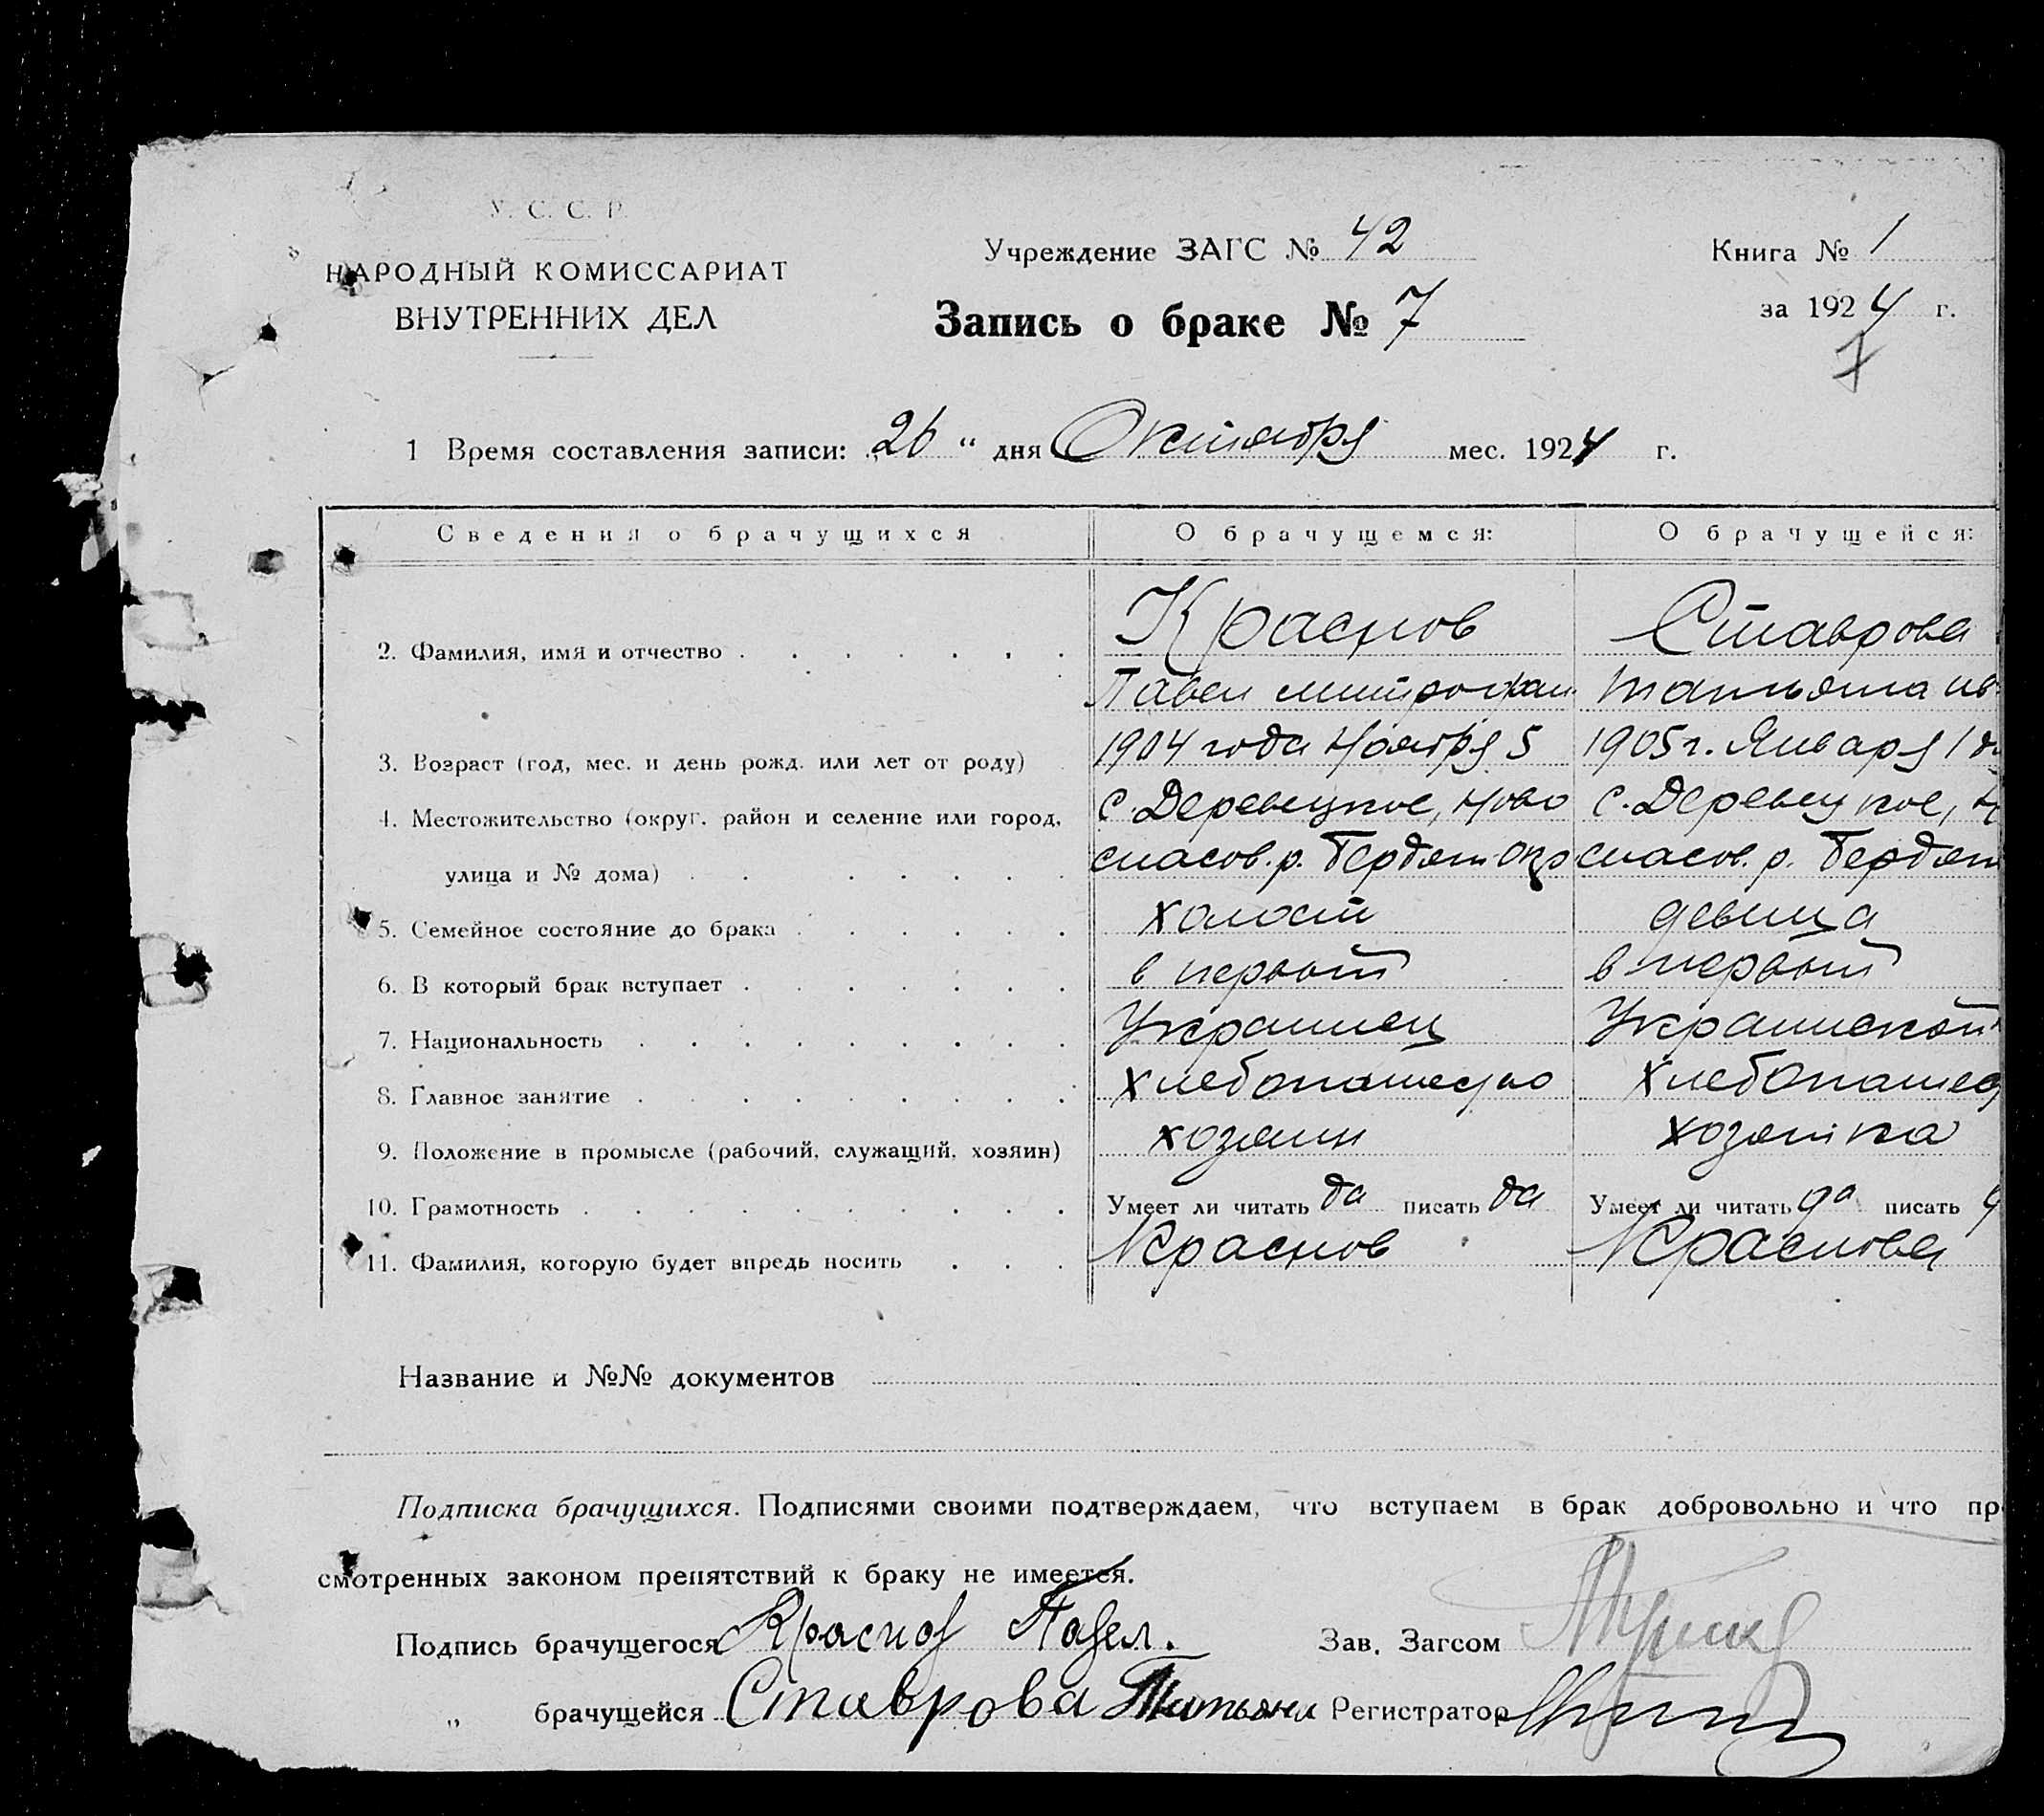 У. С. С. Р.
НАРОДНЫЙ КОМИССАРИАТ
ВНУТРЕННИХ ДЕЛ
Учреждение ЗАГС № 42
Книга № 1
Запись о браке № 7
за 1924 г.
7
1 Время составления записи: „26“ дня Октября мес. 1924 г.
Сведения о брачущихся О брачущемся: О брачущейся:
2. Фамилия, имя и отчество Краснов Ставрова
Павел митрофан Татьяна ив
3. Возраст (год, мес. и день рожд. или лет от роду) 1904 года Ноября 5 1905 г. Января 1
4. Местожительство (округ, район и селение или город, с. Деревецкое, Ново с. Деревецкое, Н
улица и № дома) спасов. р. Бердян окр спасов. р. Бердян
5. Семейное состояние до брака холост девица
6. В который брак вступает в первый в первый
7. Национальность Украинец Украинской
8. Главное занятие Хлебопашество Хлебопашес
9. Положение в промысле (рабочий, служащий, хозяин) хозяин хозяйка
10. Грамотность Умеет ли читать да писать да Умеет ли читать да писать
11. Фамилия, которую будет впредь носить Краснов Краснова
Название и №№ документов
Подписка брачущихся. Подписями своими подтверждаем, что вступаем в брак добровольно и что пр
смотренных законом препятствий к браку не имеется.
Подпись брачущегося Краснов Павел. Зав. Загсом
„ брачущейся Ставрова Татьяна Регистратор